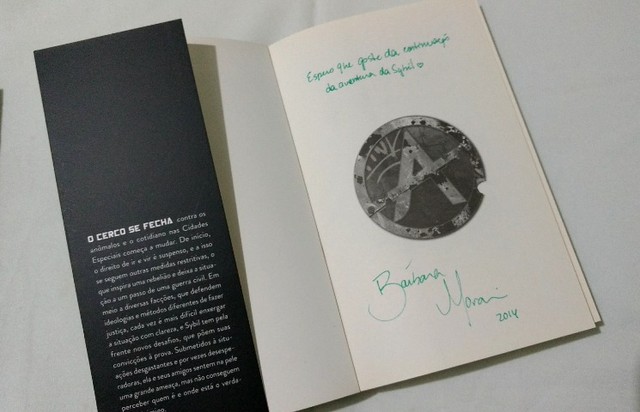 O CERCO SE FECHA contra os
anômalos e o cotidiano nas Cidades
Especiais começa a mudar. De início,
o direito de ir e vir é suspenso, e a isso
se seguem outras medidas restritivas, o
que inspira uma rebelião e deixa a situa-
ção a um passo de uma guerra civil. Em
meio a diversas facções, que defendem
ideologias e métodos diferentes de fazer
justiça, cada vez é mais difícil enxergar
a situação com clareza, e Sybil tem pela
frente novos desafios, que põem suas
convicções à prova. Submetidos à situ-
ações desgastantes e por vezes desespe-
radoras, ela e seus amigos sentem na pele
uma grande ameaça, mas não conseguem
perceber quem é e onde está o verda-
Espero que goste da continuação
da aventura da Sybil
A
Bárbara Morais
2014